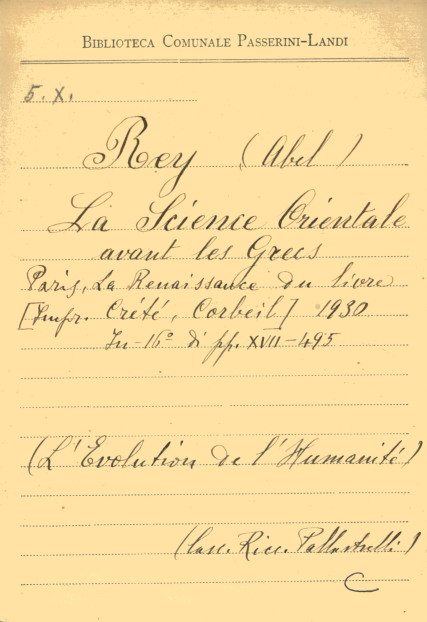 BIBLIOTECA COMUNALE PASSERINI-LANDI
5. X.
Rey (Abel)
La Science Orientale
avant les Grecs
Paris, La Renaissance du livre
[Impr. Crété, Corbeil] 1930
In-16º di pp. XVII-495
(L'Evolution de l'Humanité)
(Casc. Ricc. Pallastrelli)
C